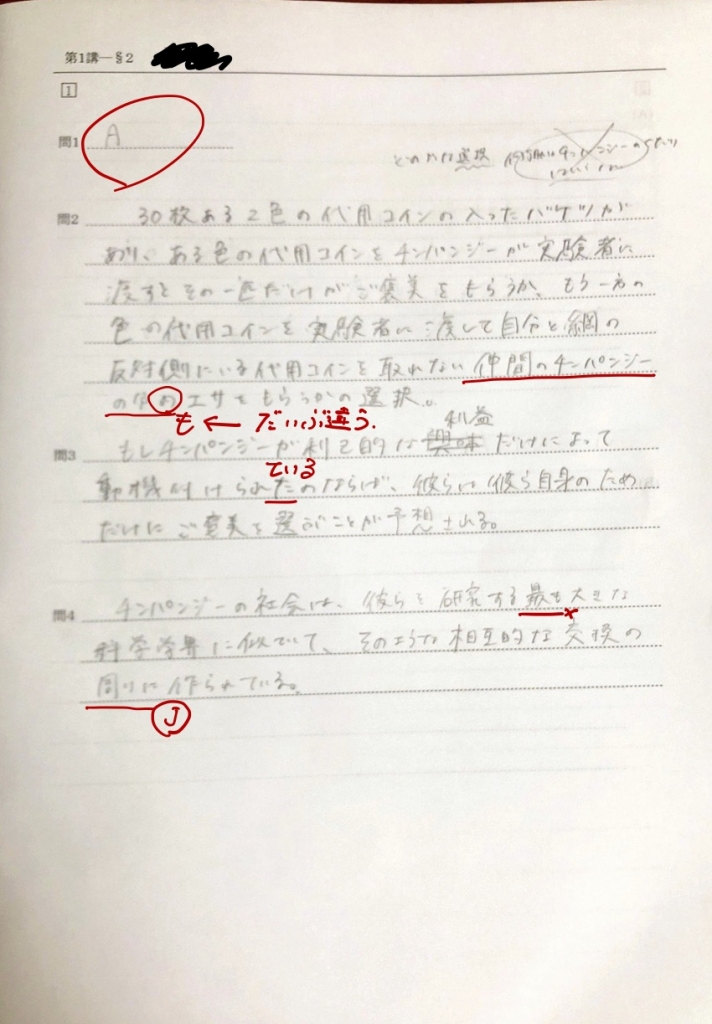 第1講—§2
1
問1 A
どのような選択
問2 30枚ある2色の代用コインの入ったバケツが
あり、ある色の代用コインをチンパンジーが実験者に
渡すとその一匹だけがご褒美をもらうか、もう一方の
色の代用コインを実験者に渡して自分と網の
反対側にいる代用コインを取れない仲間のチンパンジー
のためエサをもらうかの選択。
も ← だいぶ違う.
利益
問3 もしチンパンジーが利己的な興味だけによって
ている
動機付けられたのならば、彼らは彼ら自身のため
だけにご褒美を選ぶことが予想される。
問4 チンパンジーの社会は、彼らを研究する最も大きな
科学学界に似ていて、そのような相互的な交換の
周りに作られている。
J